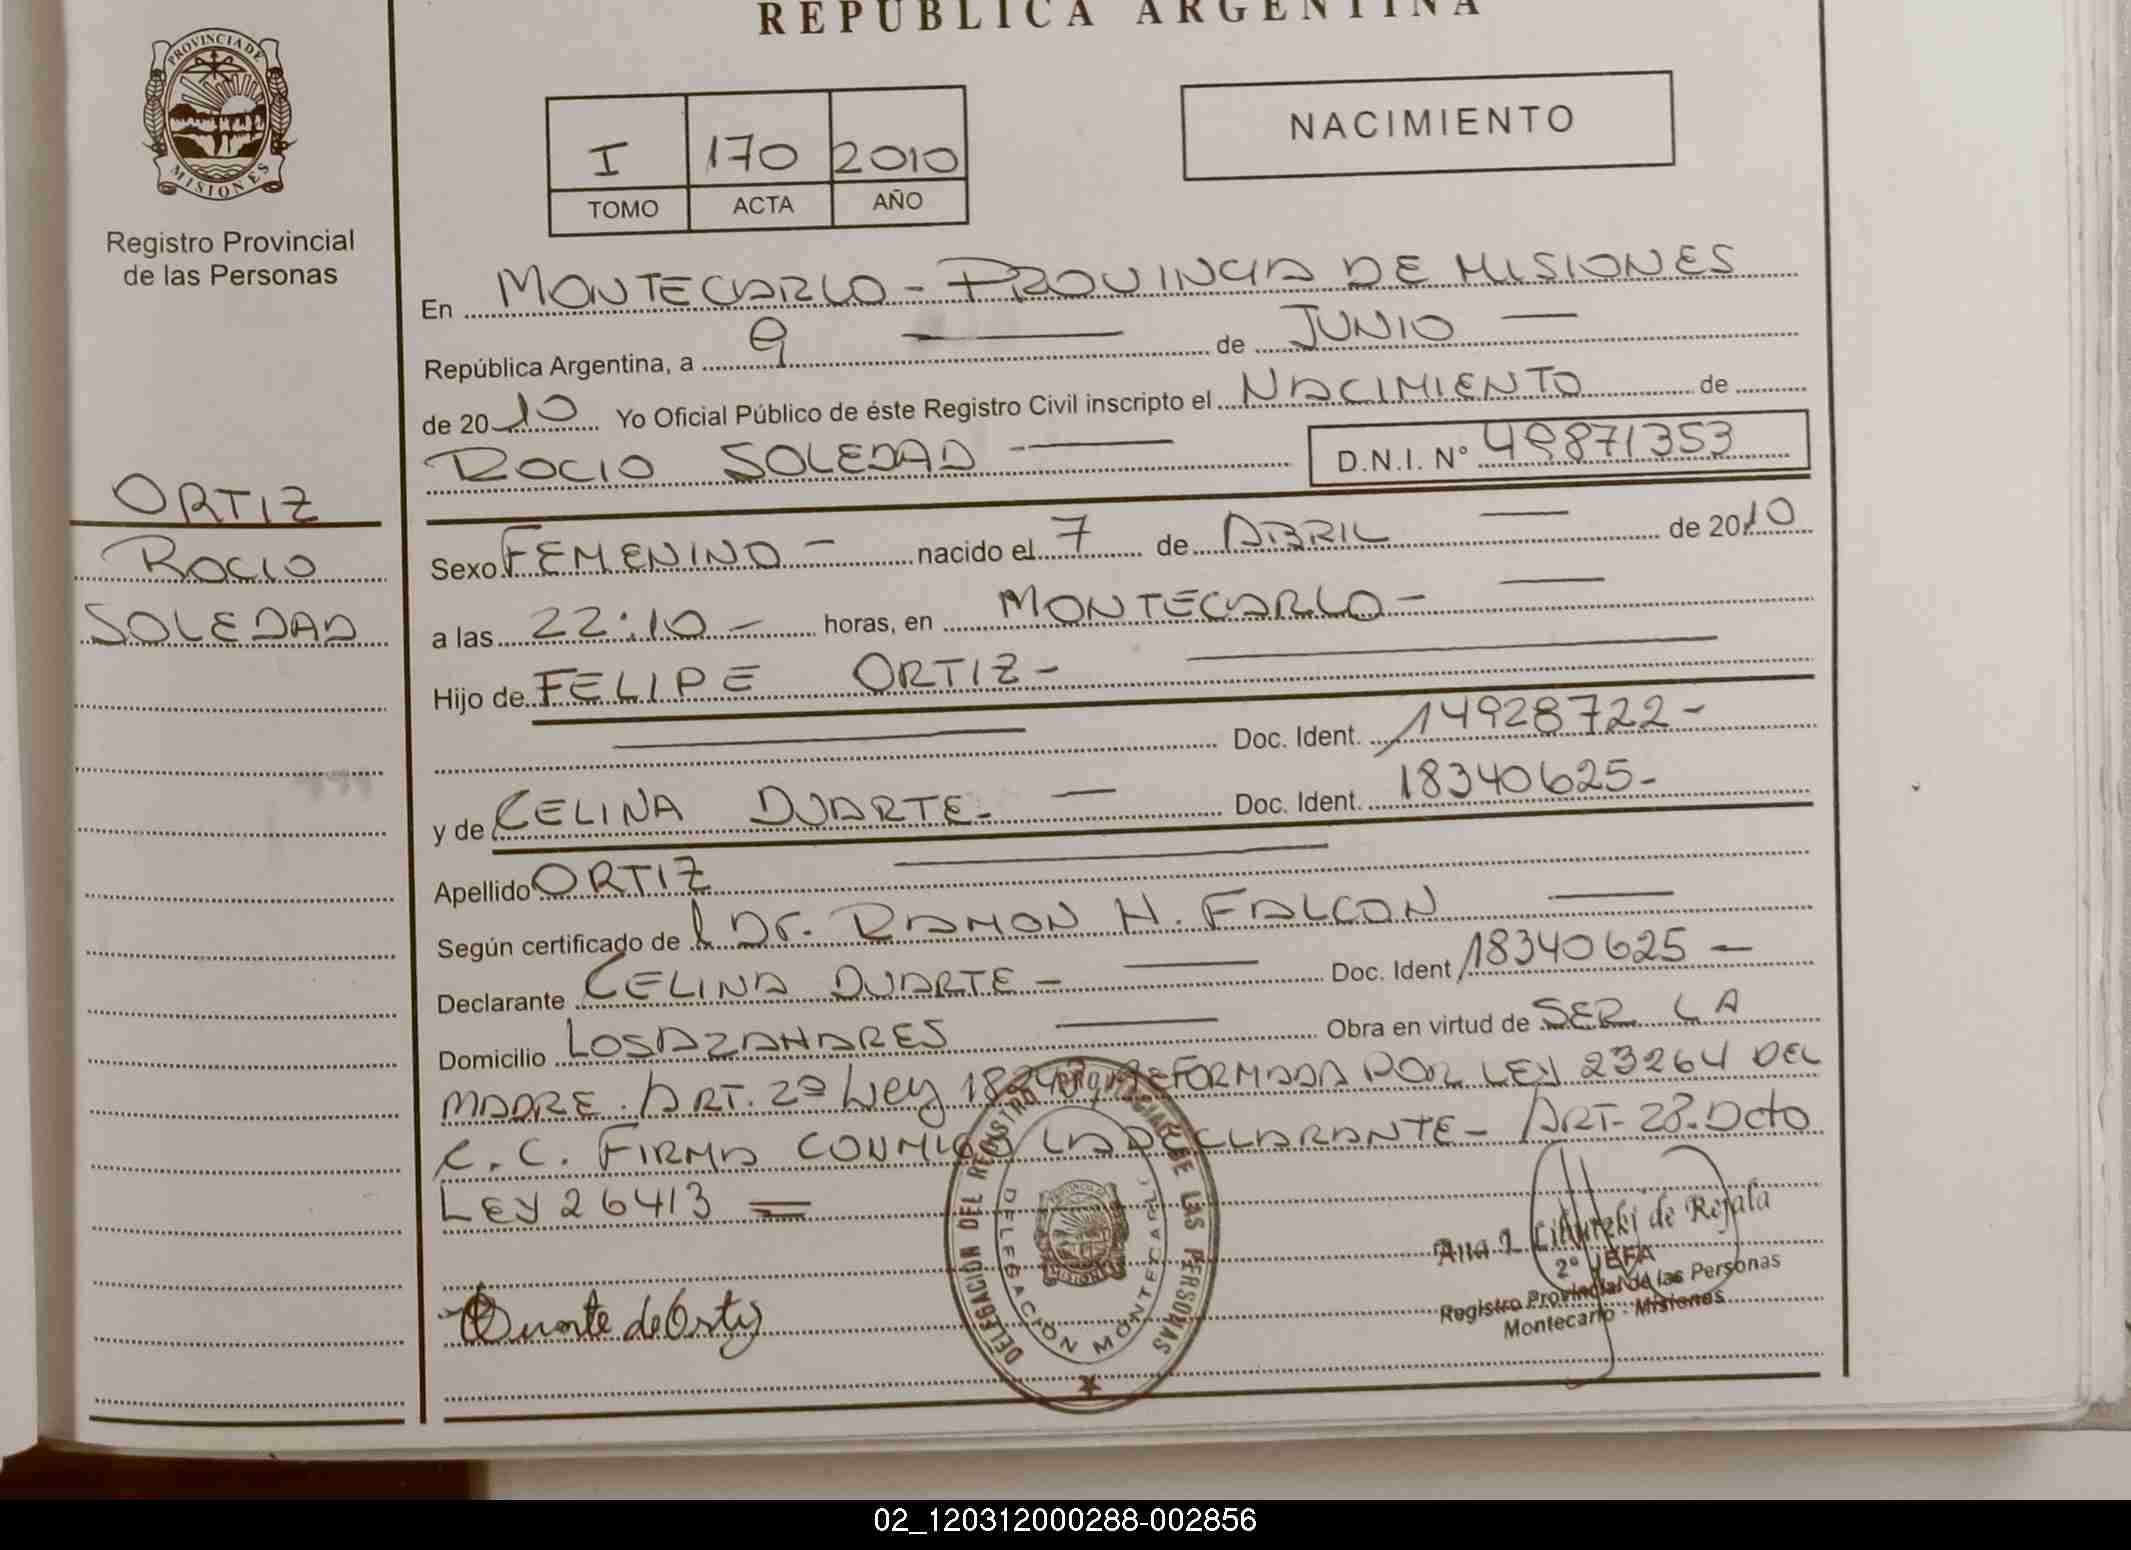 REPÚBLICA ARGENTINA
PROVINCIA DE
MISIONES
Registro Provincial
de las Personas
I 170 2010
TOMO ACTA AÑO
NACIMIENTO
En MONTECARLO - PROVINCIA DE MISIONES
República Argentina, a 9 de JUNIO
de 2010 Yo Oficial Público de éste Registro Civil inscripto el NACIMIENTO de
ROCIO SOLEDAD D.N.I. Nº 49871353
ORTIZ
ROCIO
SOLEDAD
Sexo FEMENINO - nacido el 7 de ABRIL de 2010
a las 22:10 - horas, en MONTECARLO -
Hijo de FELIPE ORTIZ -
Doc. Ident. 14928722-
y de CELINA DUARTE - Doc. Ident. 18340625-
Apellido ORTIZ
Según certificado de l Dr. RAMON H. FALCON
Declarante CELINA DUARTE - Doc. Ident 18340625 -
Domicilio LOS AZAHARES Obra en virtud de SER LA
MADRE. ART. 2º Ley REFORMADA POR LEY 23264 DEL
C. C. FIRMA CONMIGO LA DECLARANTE - ART- 28. Dcto
LEY 26413 =
DELEGACIÓN DEL REGISTRO PROVINCIAL DE LAS PERSONAS
DELEGACIÓN MONTECARLO
PROVINCIA DE
MISIONES
Duarte de Ortiz
Ana de Rejala
2º JEFA
Registro Provincial de las Personas
Montecarlo - Misiones
02_120312000288-002856